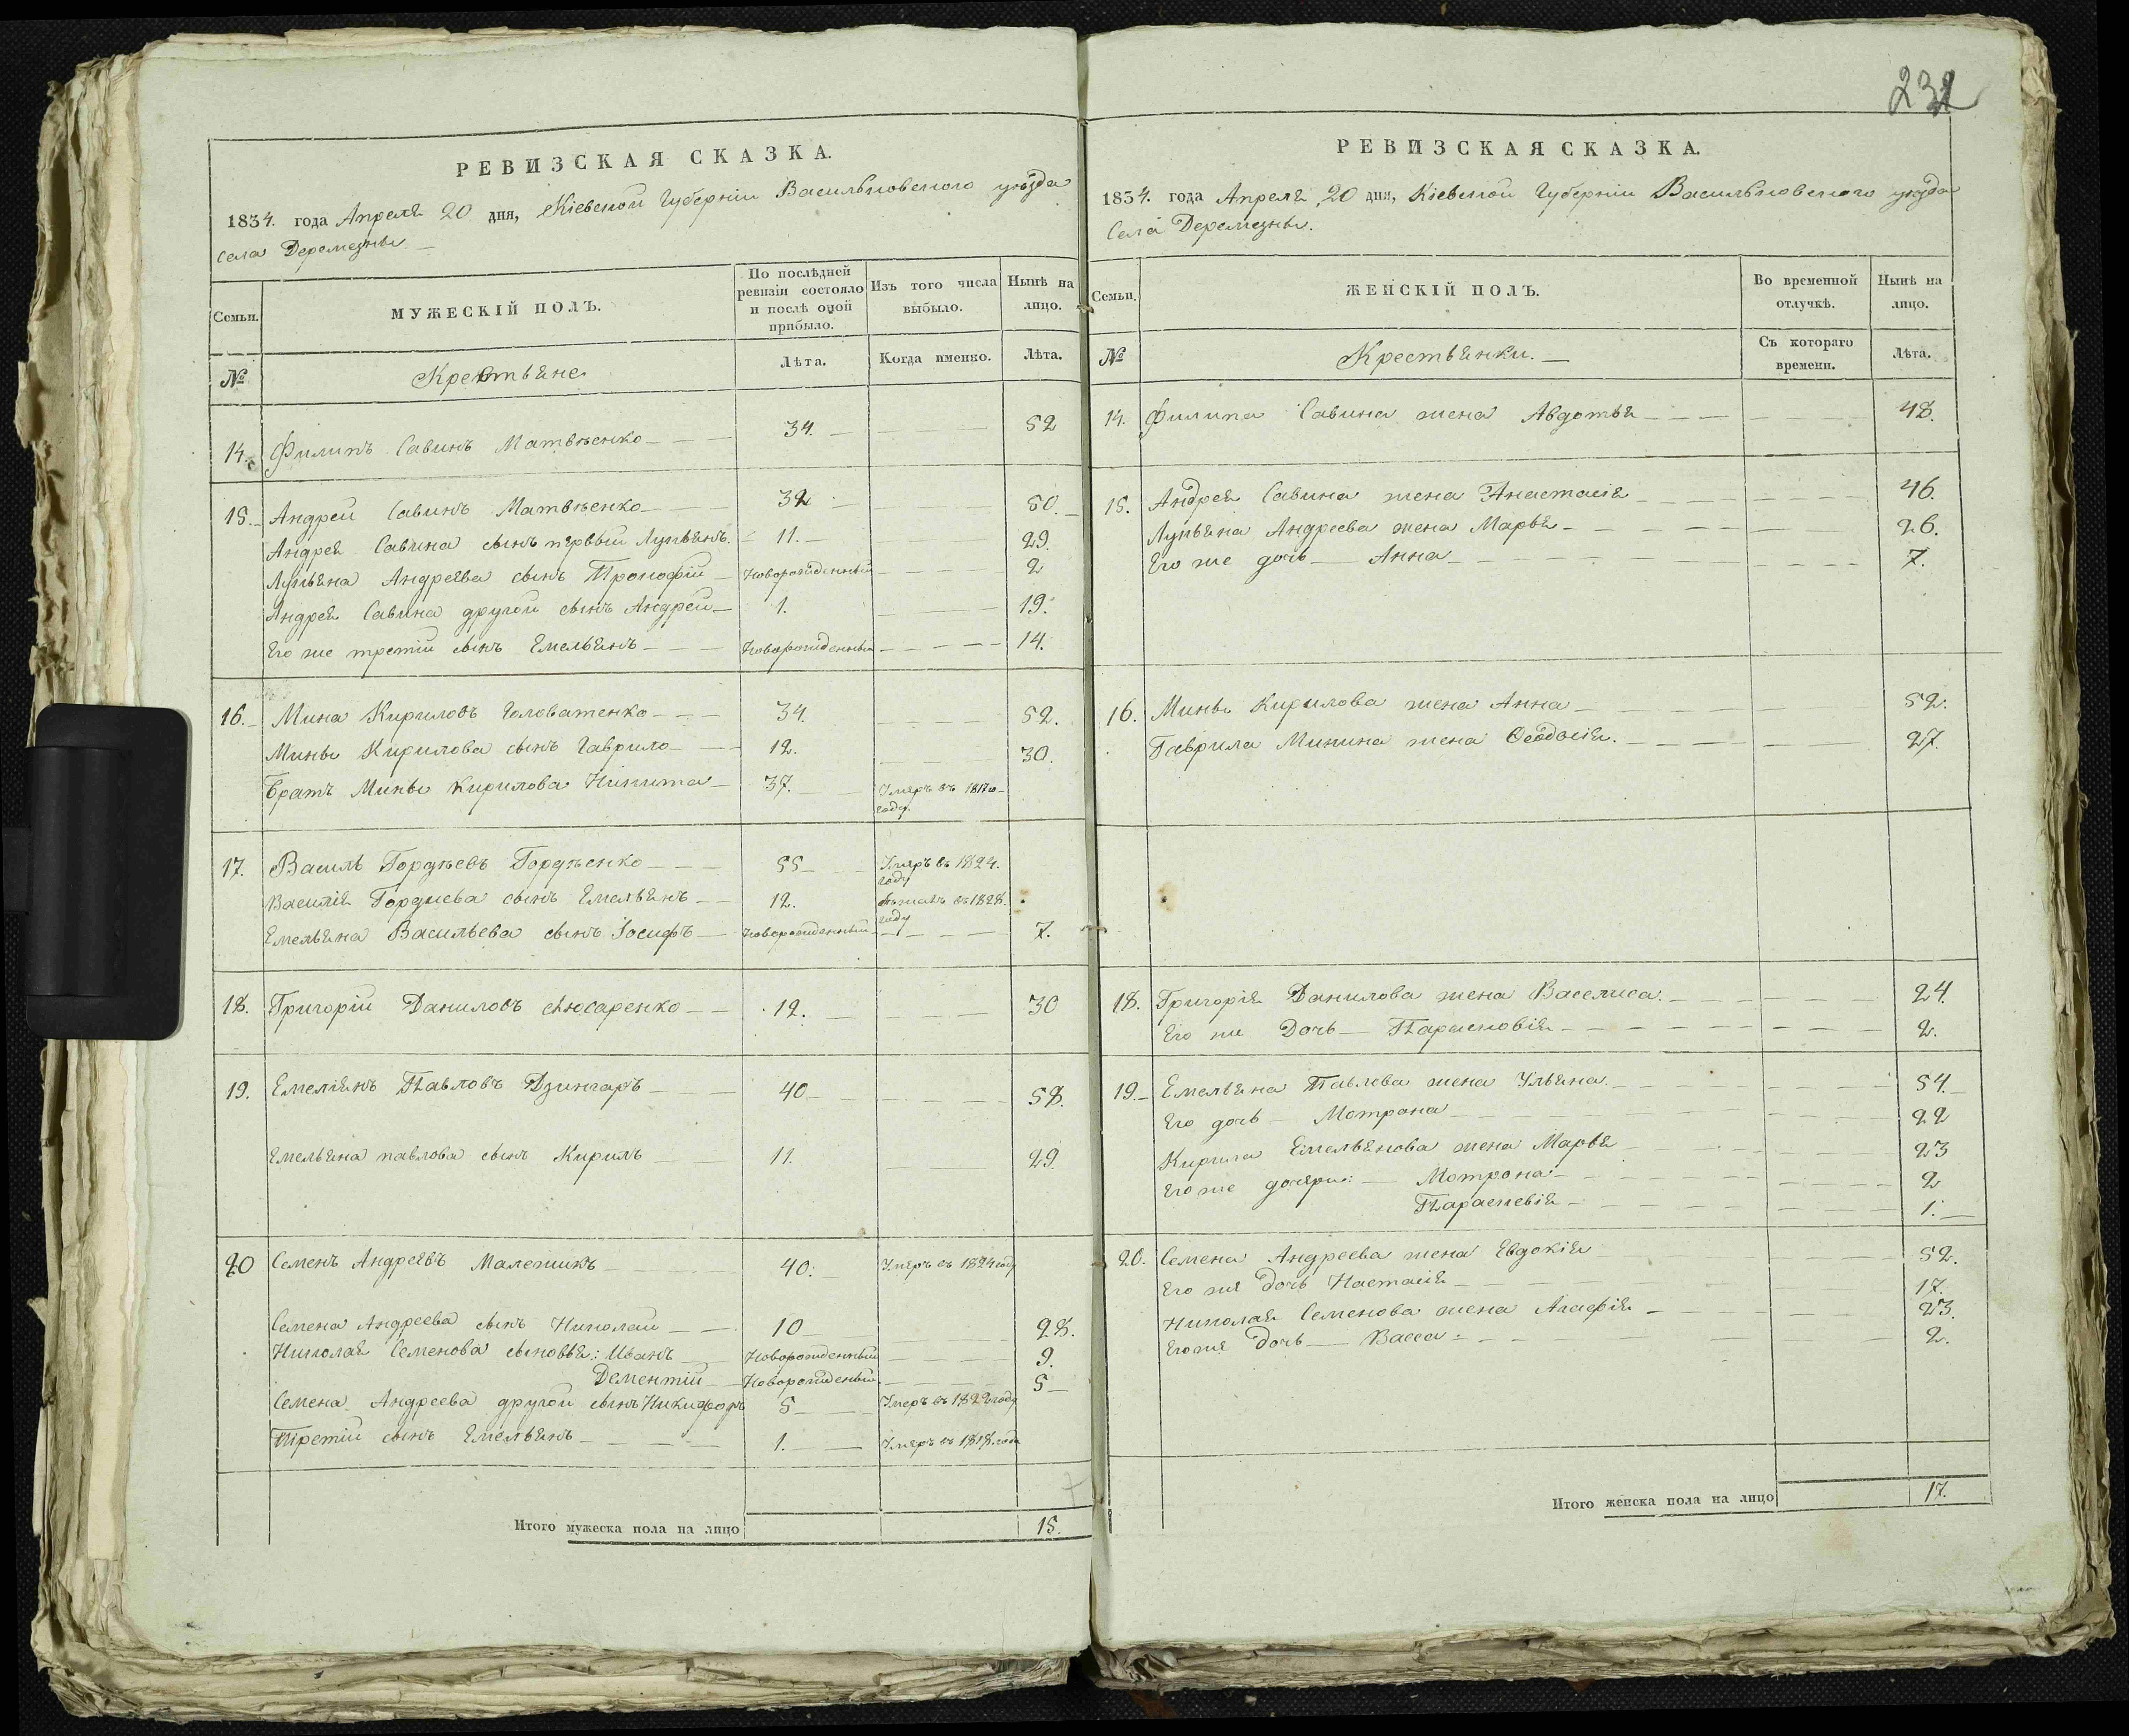 232
РЕВИЗСКАЯ СКАЗКА.
1834. года Апреля 20 дня, Кіевской Губерніи Васильковского уѣзда
села Деремезны. —
Семьи.
МУЖЕСКІЙ ПОЛЪ.
По послѣдней ревизіи состояло и послѣ оной прибыло.
Изъ того числа выбыло.
Нынѣ на лицо.
№
Крестьяне
Лѣта.
Когда именно.
Лѣта.
14. Филипъ Савинъ Матвѣенко 34. 52
15. Андрей Савинъ Матвѣенко 32 50.
Андрея Савина сынъ первый Лукьянъ. 11. 29.
Лукьяна Андреева сынъ Прокофій Новорожденный 2
Андрея Савина другой сынъ Андрей 1. 19.
Его же третій сынъ Емельянъ Новорожденный 14.
16. Мина Кириловъ Головатенко 34. 52.
Мины Кирилова сынъ Гаврило 12. 30.
Братъ Мины Кирилова Никита 37. Умеръ въ 1817 году.
17. Василь Гордѣевъ Гордѣенко 55 Умеръ въ 1824. году
Василія Гордиева сынъ Емельянъ 12. бѣжалъ въ 1828. году
Емельяна Васильева сынъ Іосифъ Новорожденный 7.
18. Григорій Даниловъ 12. 30
19. Емелianъ Павловъ Дзингаръ 40 58.
Емельяна павлова сынъ Кирилъ 11. 29.
20 Семенъ Андреевъ Малежикъ 40. Умеръ въ 1824 году
Семена Андреева сынъ Николай 10 28.
Николая Семенова сыновья: Иванъ Новорожденный 9.
Дементій Новорожденый 5
Семена Андреева другой сынъ Никифоръ 5 Умеръ въ 1822 году
Третій сынъ Емельянъ 1. Умеръ въ 1818. году
Итого мужеска пола на лицо 15.
РЕВИЗСКАЯ СКАЗКА.
1834. года Апреля 20 дня, Кіевской Губерніи Васильковского уѣзда
Села Деремезны.
Семьи.
ЖЕНСКІЙ ПОЛЪ.
Во временной отлучкѣ.
Нынѣ на лицо.
№
Крестьянки. —
Съ котораго времени.
Лѣта.
14. Филипа Савина жена Авдотья 48.
15. Андрея Савина жена Анастасія 46.
Лукьяна Андреева жена Марья 26.
Его же дочь Анна 7.
16. Мины Кирилова жена Анна 52.
Гаврила Минина жена Феодосія. 27.
18. Григорія Данилова жена Васелиса. 24.
Его же Дочь Парасковія 2.
19. Емельяна Павлова жена Ульяна 54.
Его дочь Мотрона 22
Кирила Емельянова жена Марья 23
Его же дочери: Мотрона 2
Параскевія 1.
20. Семена Андреева жена Евдокія 52.
Его же дочь Настасія 17.
Николая Семенова жена Агафія 23.
Его же дочь Васса 2.
Итого женска пола на лицо 17.